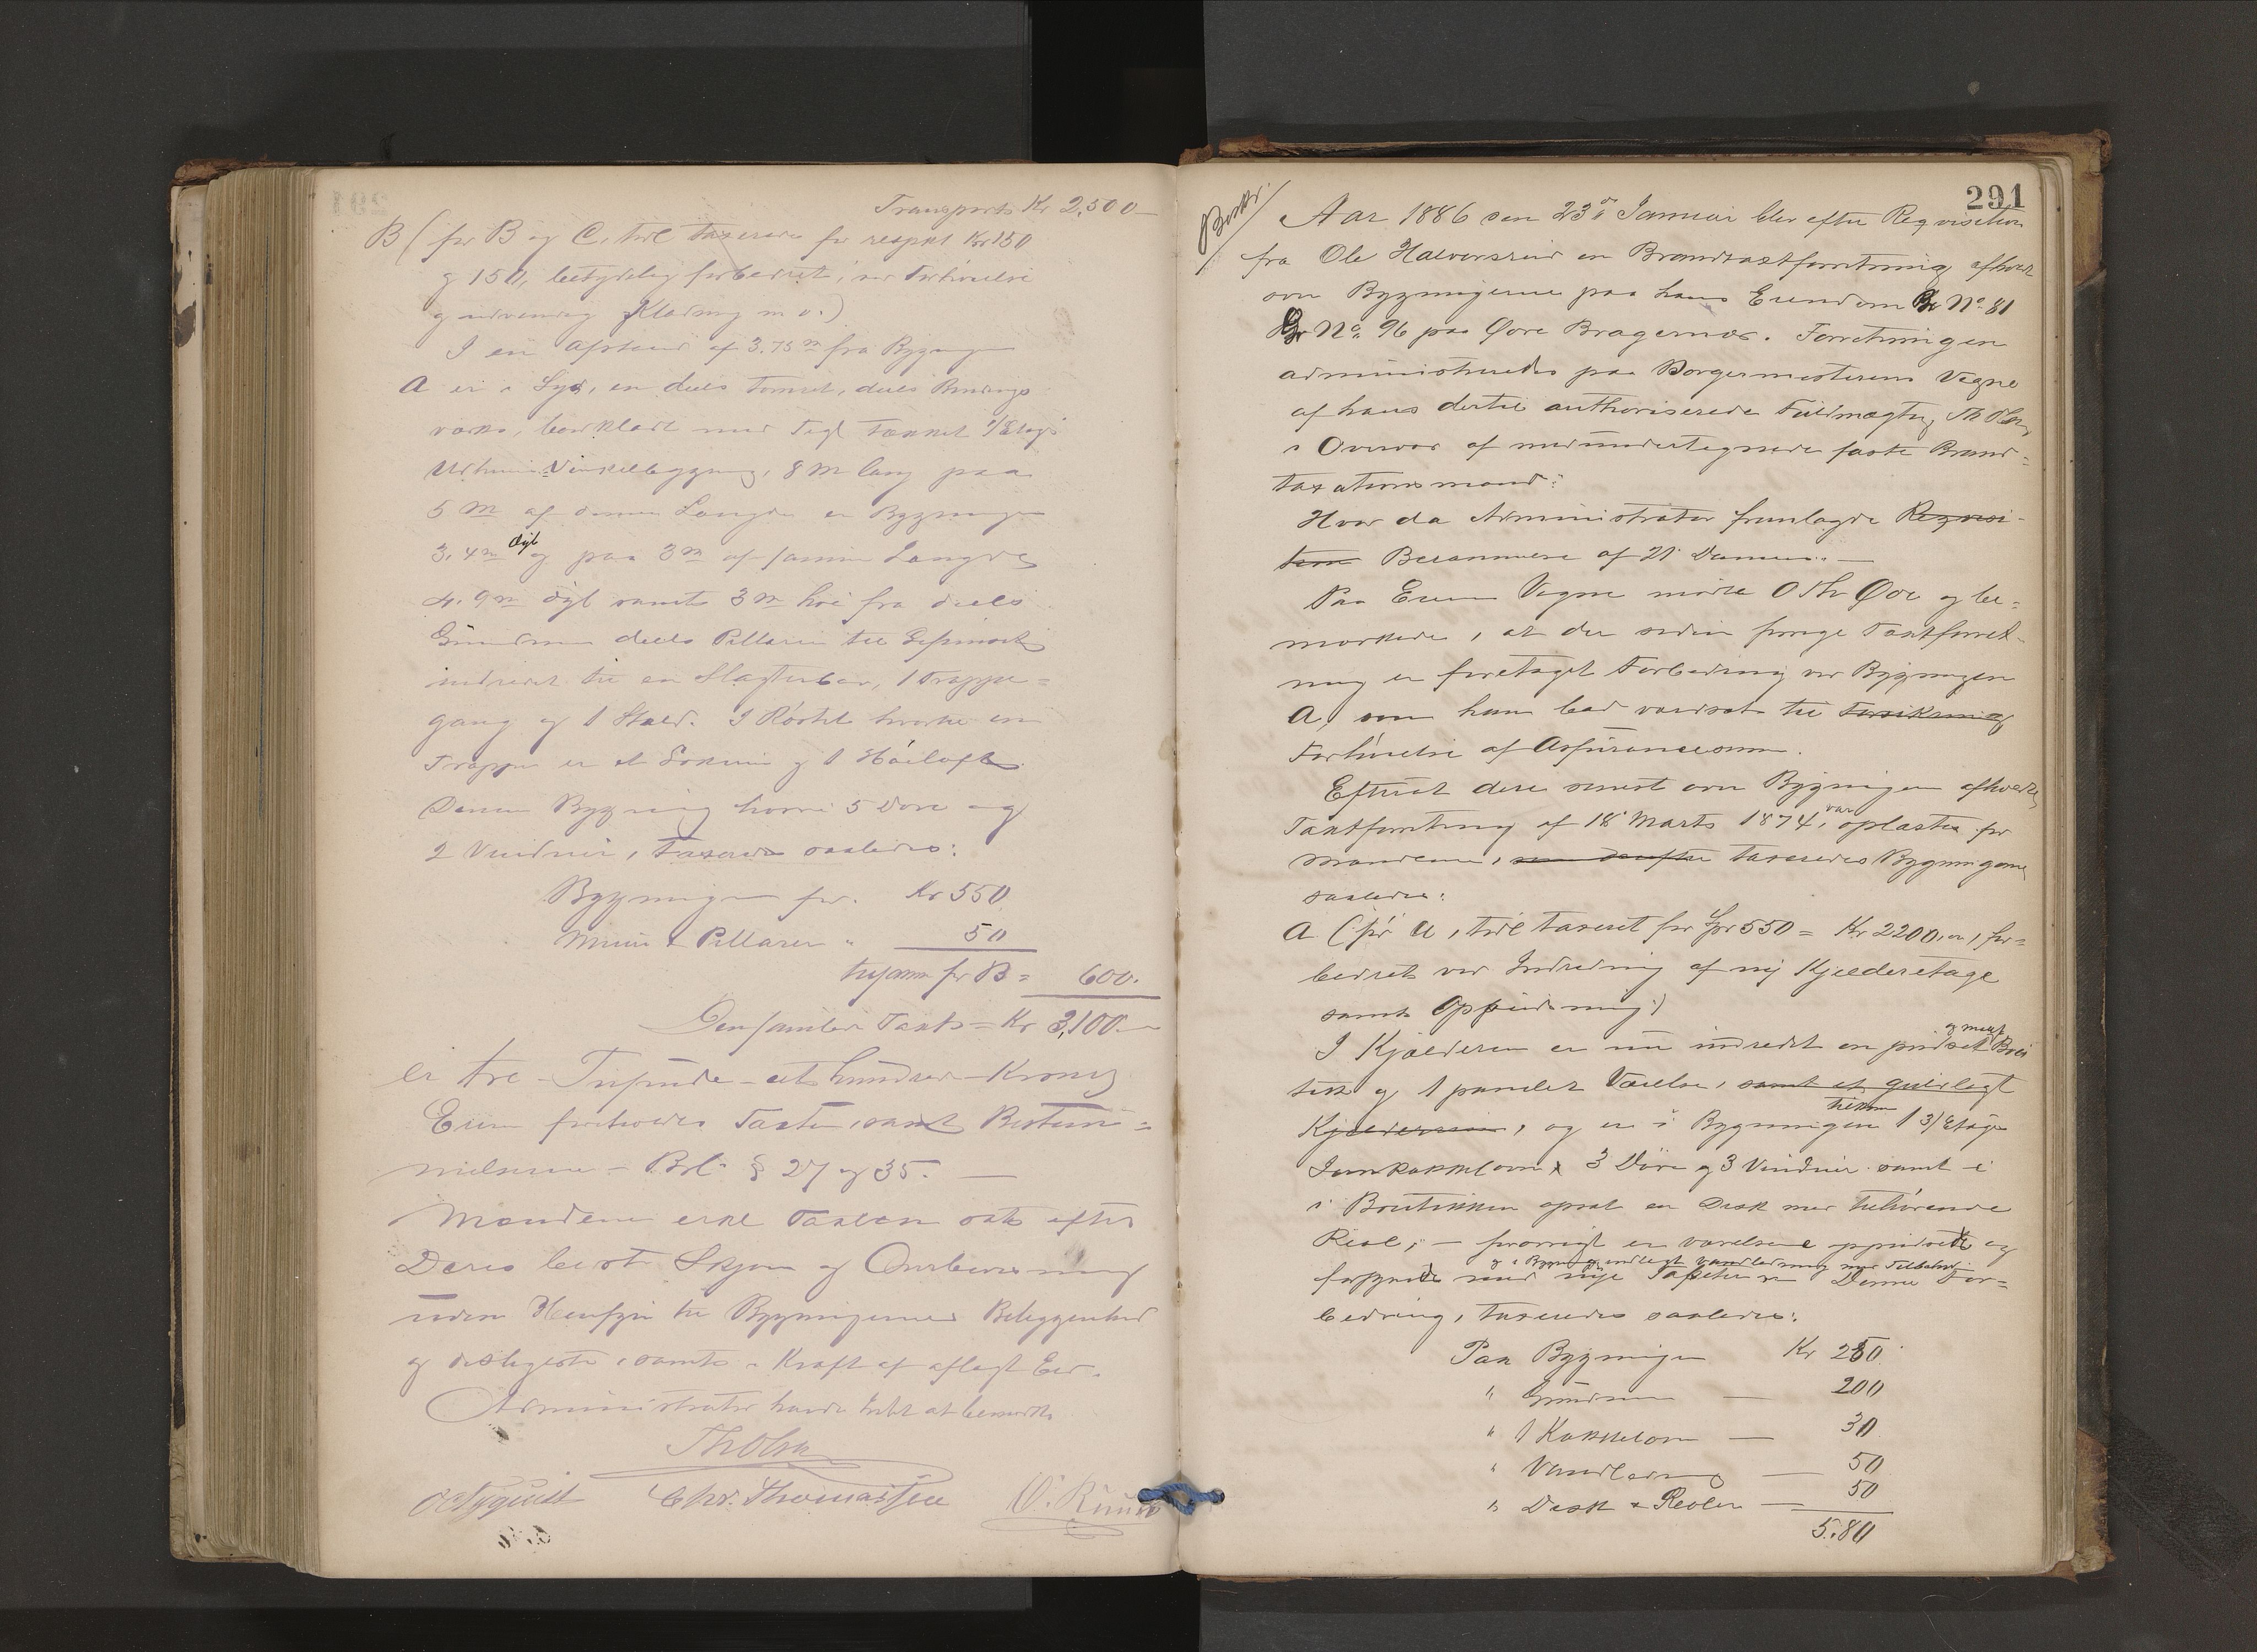 Transport Kr 2,500 —
B (før B og C, tril taxerede for respkt Kr 150
og 150, betydelig forbedret i ved Forhøielse
og udvendig Klædning m v.)
I en Afstand af 3.75 m fra Bygningen
A er i Syd, en deels tømret, deels Bindings
værks, bordklædt med Tegl tækket 1 Etages
Udhuus Vinkelbygning, 8 m lang paa
5 m af denne Længde er Bygningen
3.4 m dyb og paa 3 m af samme Længde
4.9 m dyb samt 3 m høi fra deels
Grundmur deels Pillarer til Gesimsen
indredet til en Slagterbod, 1 Trappe=
gang og 1 Stald. I Røstet hvortil en
Trappe er et Lokum og 1 Høiloft
Denne Bygning hvori 5 Døre og
2 Vinduer, taxeredes saaledes:
Bygningen for Kr 550
Muur & Pillarer " 50
tilsammen for B = 600.
Den samlede Taxt = Kr 3,100 —
er tre - Tusinde - et hundrede - Kroner
Eieren foreholdtes Taxten, samt Bestem=
melserne i Brl. § 27 og 35. —
Mændene erkl Taxten sat efter
Deres bedste Skjøn og Overbeviisning
uden Hensyn til Bygningernes Beliggenhed
og desligeste, samt i Kraft af aflagt Eed.
Administrator havde Intet at bemærke
Th Olsen
Chr. Thomassen
291
Aar 1886 den 23de Januar blev efter Reqvisition
fra Ole Halvorsen en Brandtaxtforretning afholdt
over Bygningerne paa hans Eiendom Br No. 81
Gr No. 96 paa Øvre Bragernæs. Forretningen
administreredes paa Borgermesterens Vegne
af hans dertil authoriserede Fuldmægtig Th Olsen
i Overvær af medundertegnede faste Brand=
taxationsmænd:
Hvor da Administrator fremlagde Reqvisi-
tion Berammelse af 21 Dennes. —
Paa Eierens Vegne mødte O Th Øde og be=
mærkede, at der siden forrige Taxtforret-
ning er foretaget Forbedring ved Bygningen
A, som han bad værdsat til Forsikring
Forhøielse af Assurancesum.
Efterat dere senest over Bygningen afholdte
Taxtforretning af 18 Marts 1874, var oplæst for
Mændene, som derefter taxeredes Bygningerne
saaledes:
A (før A, tril taxeret for Spd 550 = Kr 2200, er for=
bedret ved Indredning af ny Kjælderetage
samt Oppudsning)
I Kjælderen er nu indredet en pudset og malt Bou
tik og 1 panelet Værelse, samt et gulvlagt
Kjælderrum, og er i Bygningen tilkom 1 3/Etages
Jernkakkelovn 3 Døre og 3 Vinduer samt i
i Boutikken opsat en Disk med tilhørende
Reol; — forøvrigt er værelserne oppudsede og
og i Bygningen indlagt Vandledning med Tilbehør
forsynede med nye Tapeter. Denne For=
bedring, taxeredes saaledes:
Paa Bygningen Kr 250
" Grundmur — 200
" 1 Kakkelovn — 30
" Vandledning — 50
" Disk & Reoler — 50
5.80